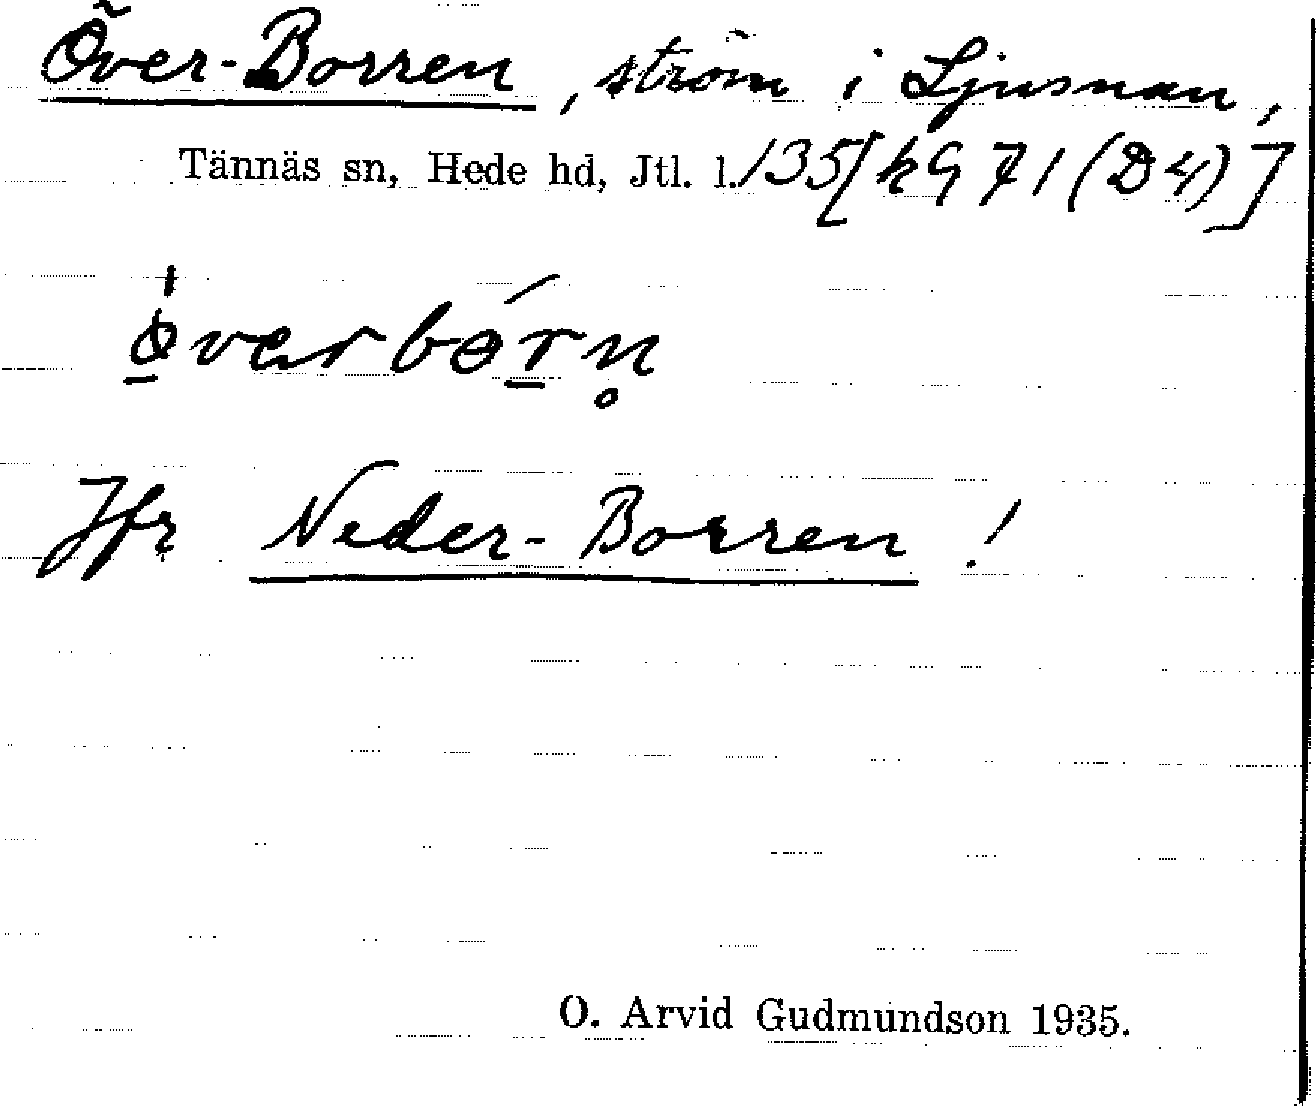 Över-Borren, ström i Ljusnan,
Tännäs sn, Hede hd, Jtl. l. 135 [kG 71 (D4)]
Jfr Neder-Borren!
O. Arvid Gudmundson 1935.